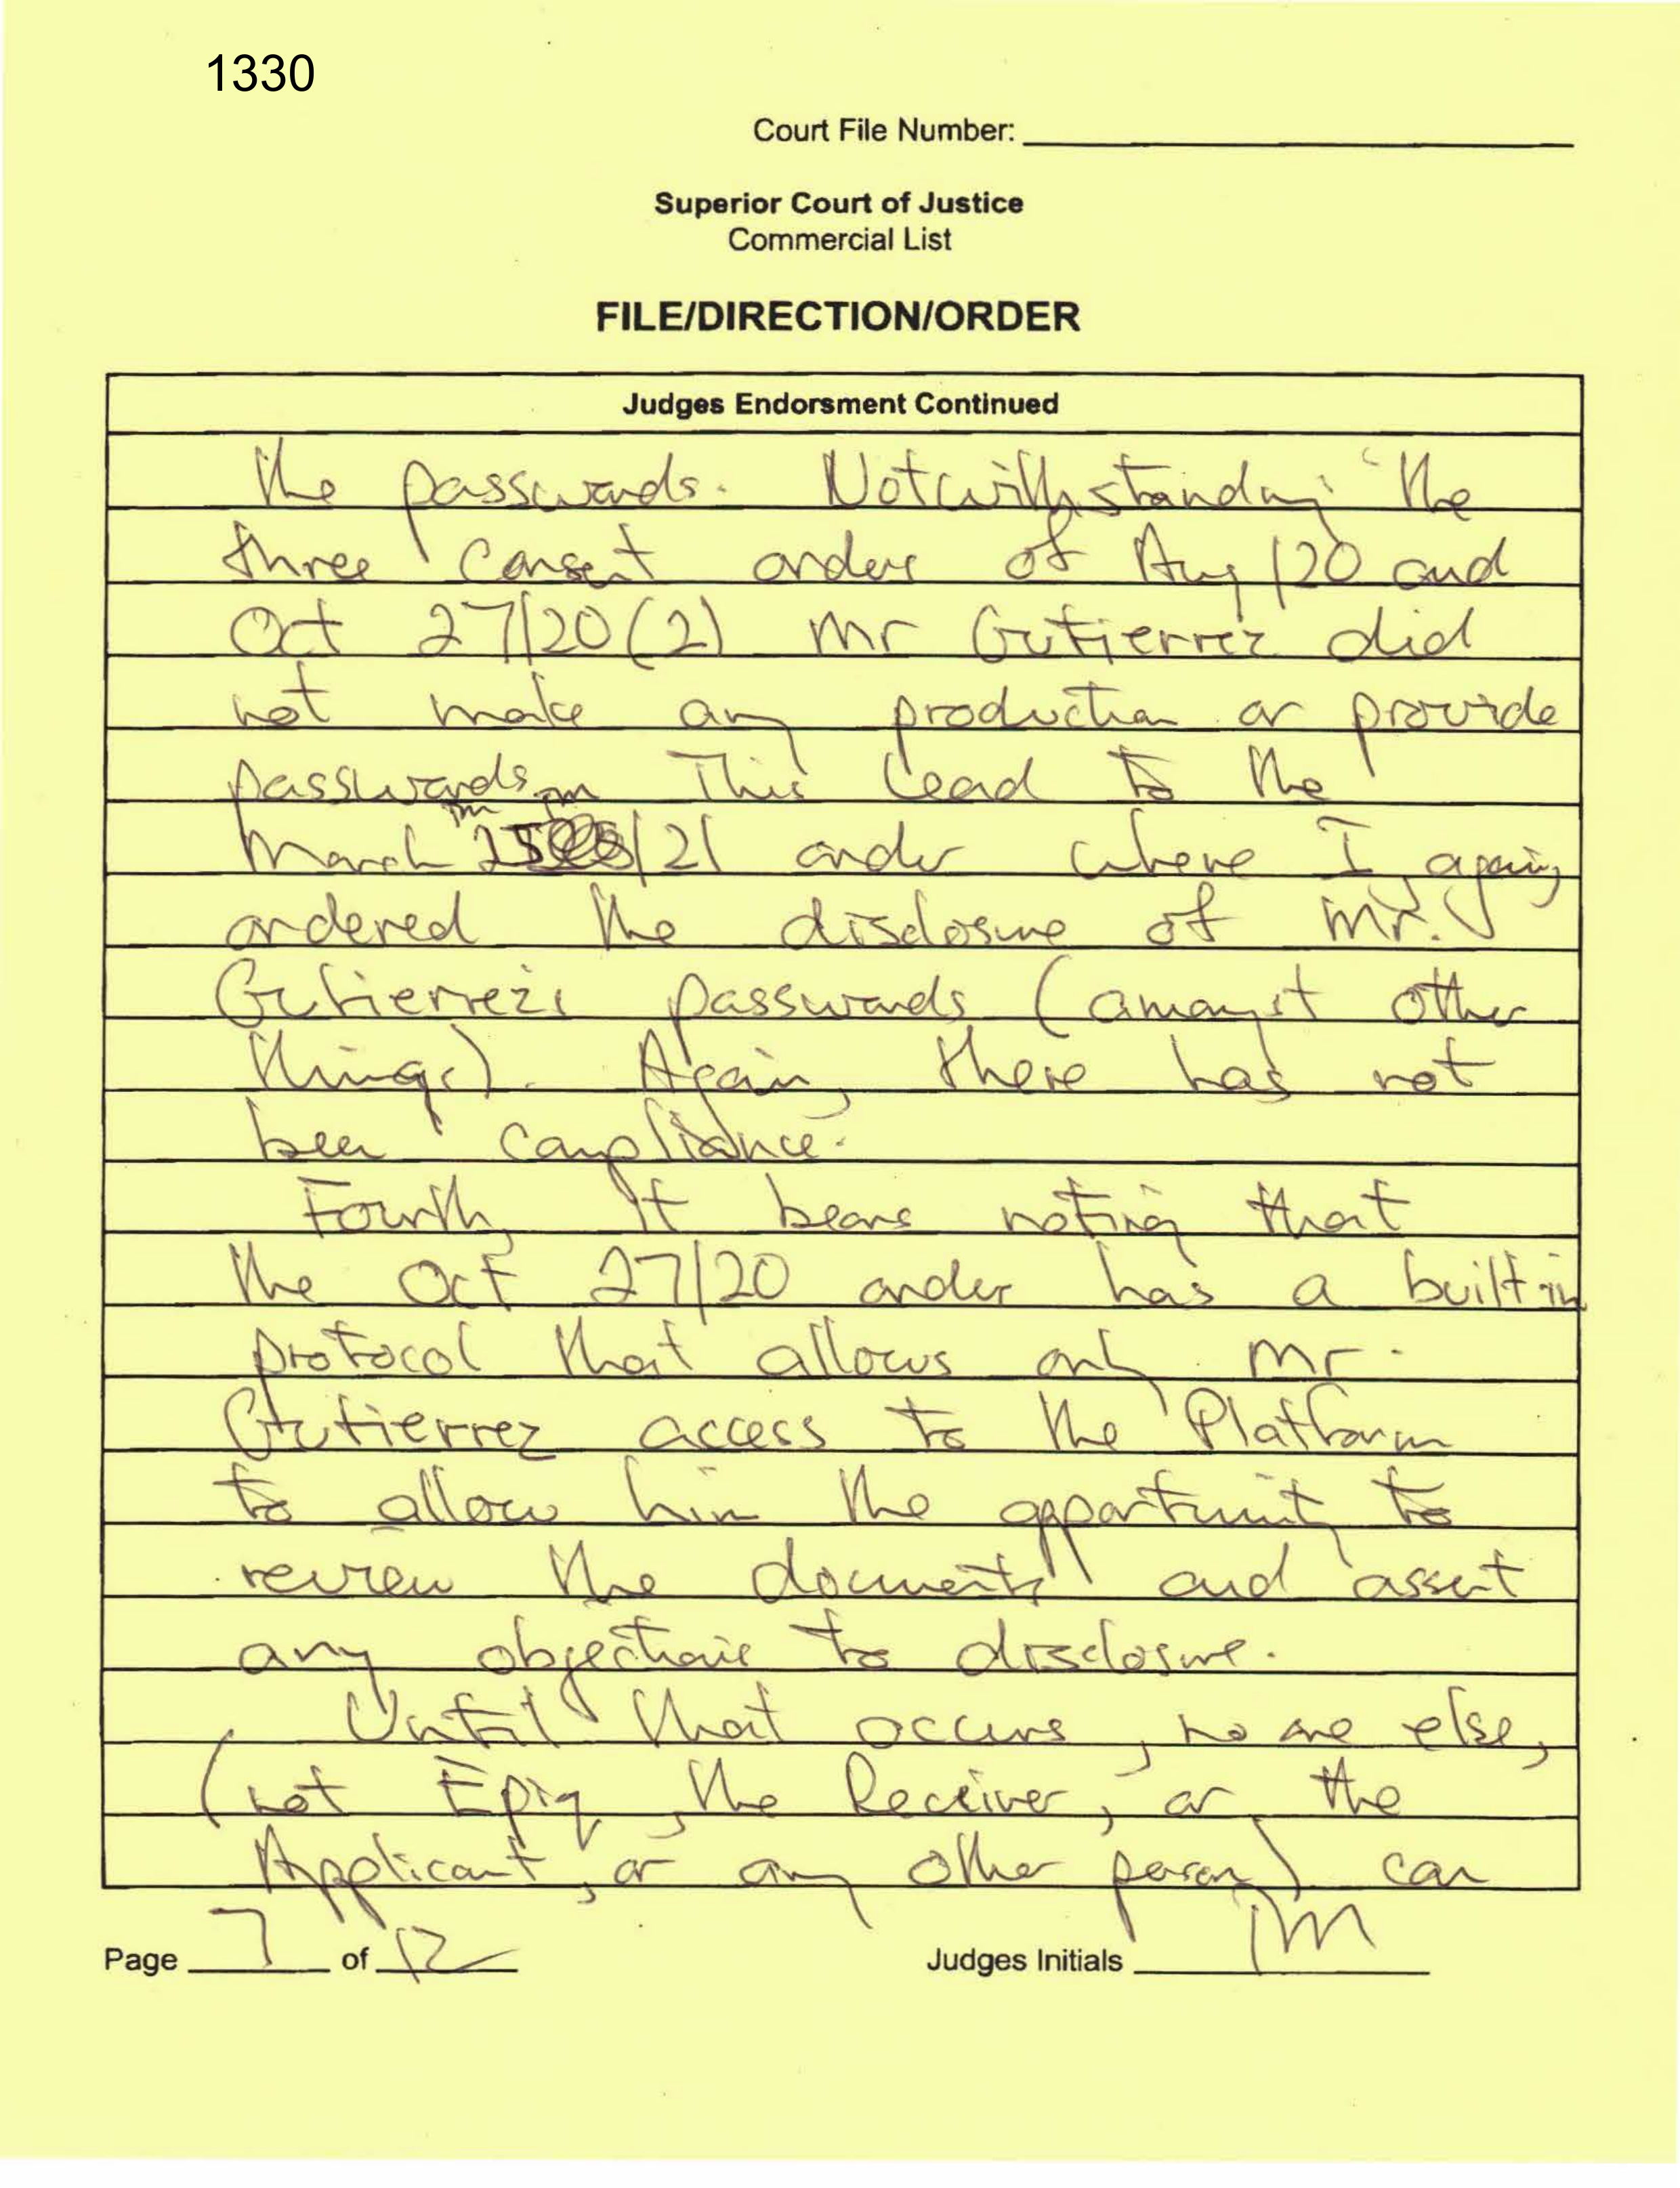 1330
Court File Number:
Superior Court of Justice
Commercial List
FILE/DIRECTION/ORDER
Judges Endorsment Continued
the passwords. Notwithstanding the
three consent orders of Aug /20 and
Oct 27/20 (2) Mr Gutierrez did
not make any production or provide
passwords. This lead to the
March 25/21 order where I again
ordered the disclosure of Mr.
Gutierrez's passwords (amongst other
things). Again, there has not
been compliance.
Fourth, it bears noting that
the Oct 27/20 order has a built-in
protocol that allows only Mr.
Gutierrez access to the Platform
to allow him the opportunity to
review the documents and assert
any objections to disclosure.
Until that occurs, no one else,
(not Epiq, the Receiver, or the
Applicant, or any other person) can
Page 7 of 12
Judges Initials